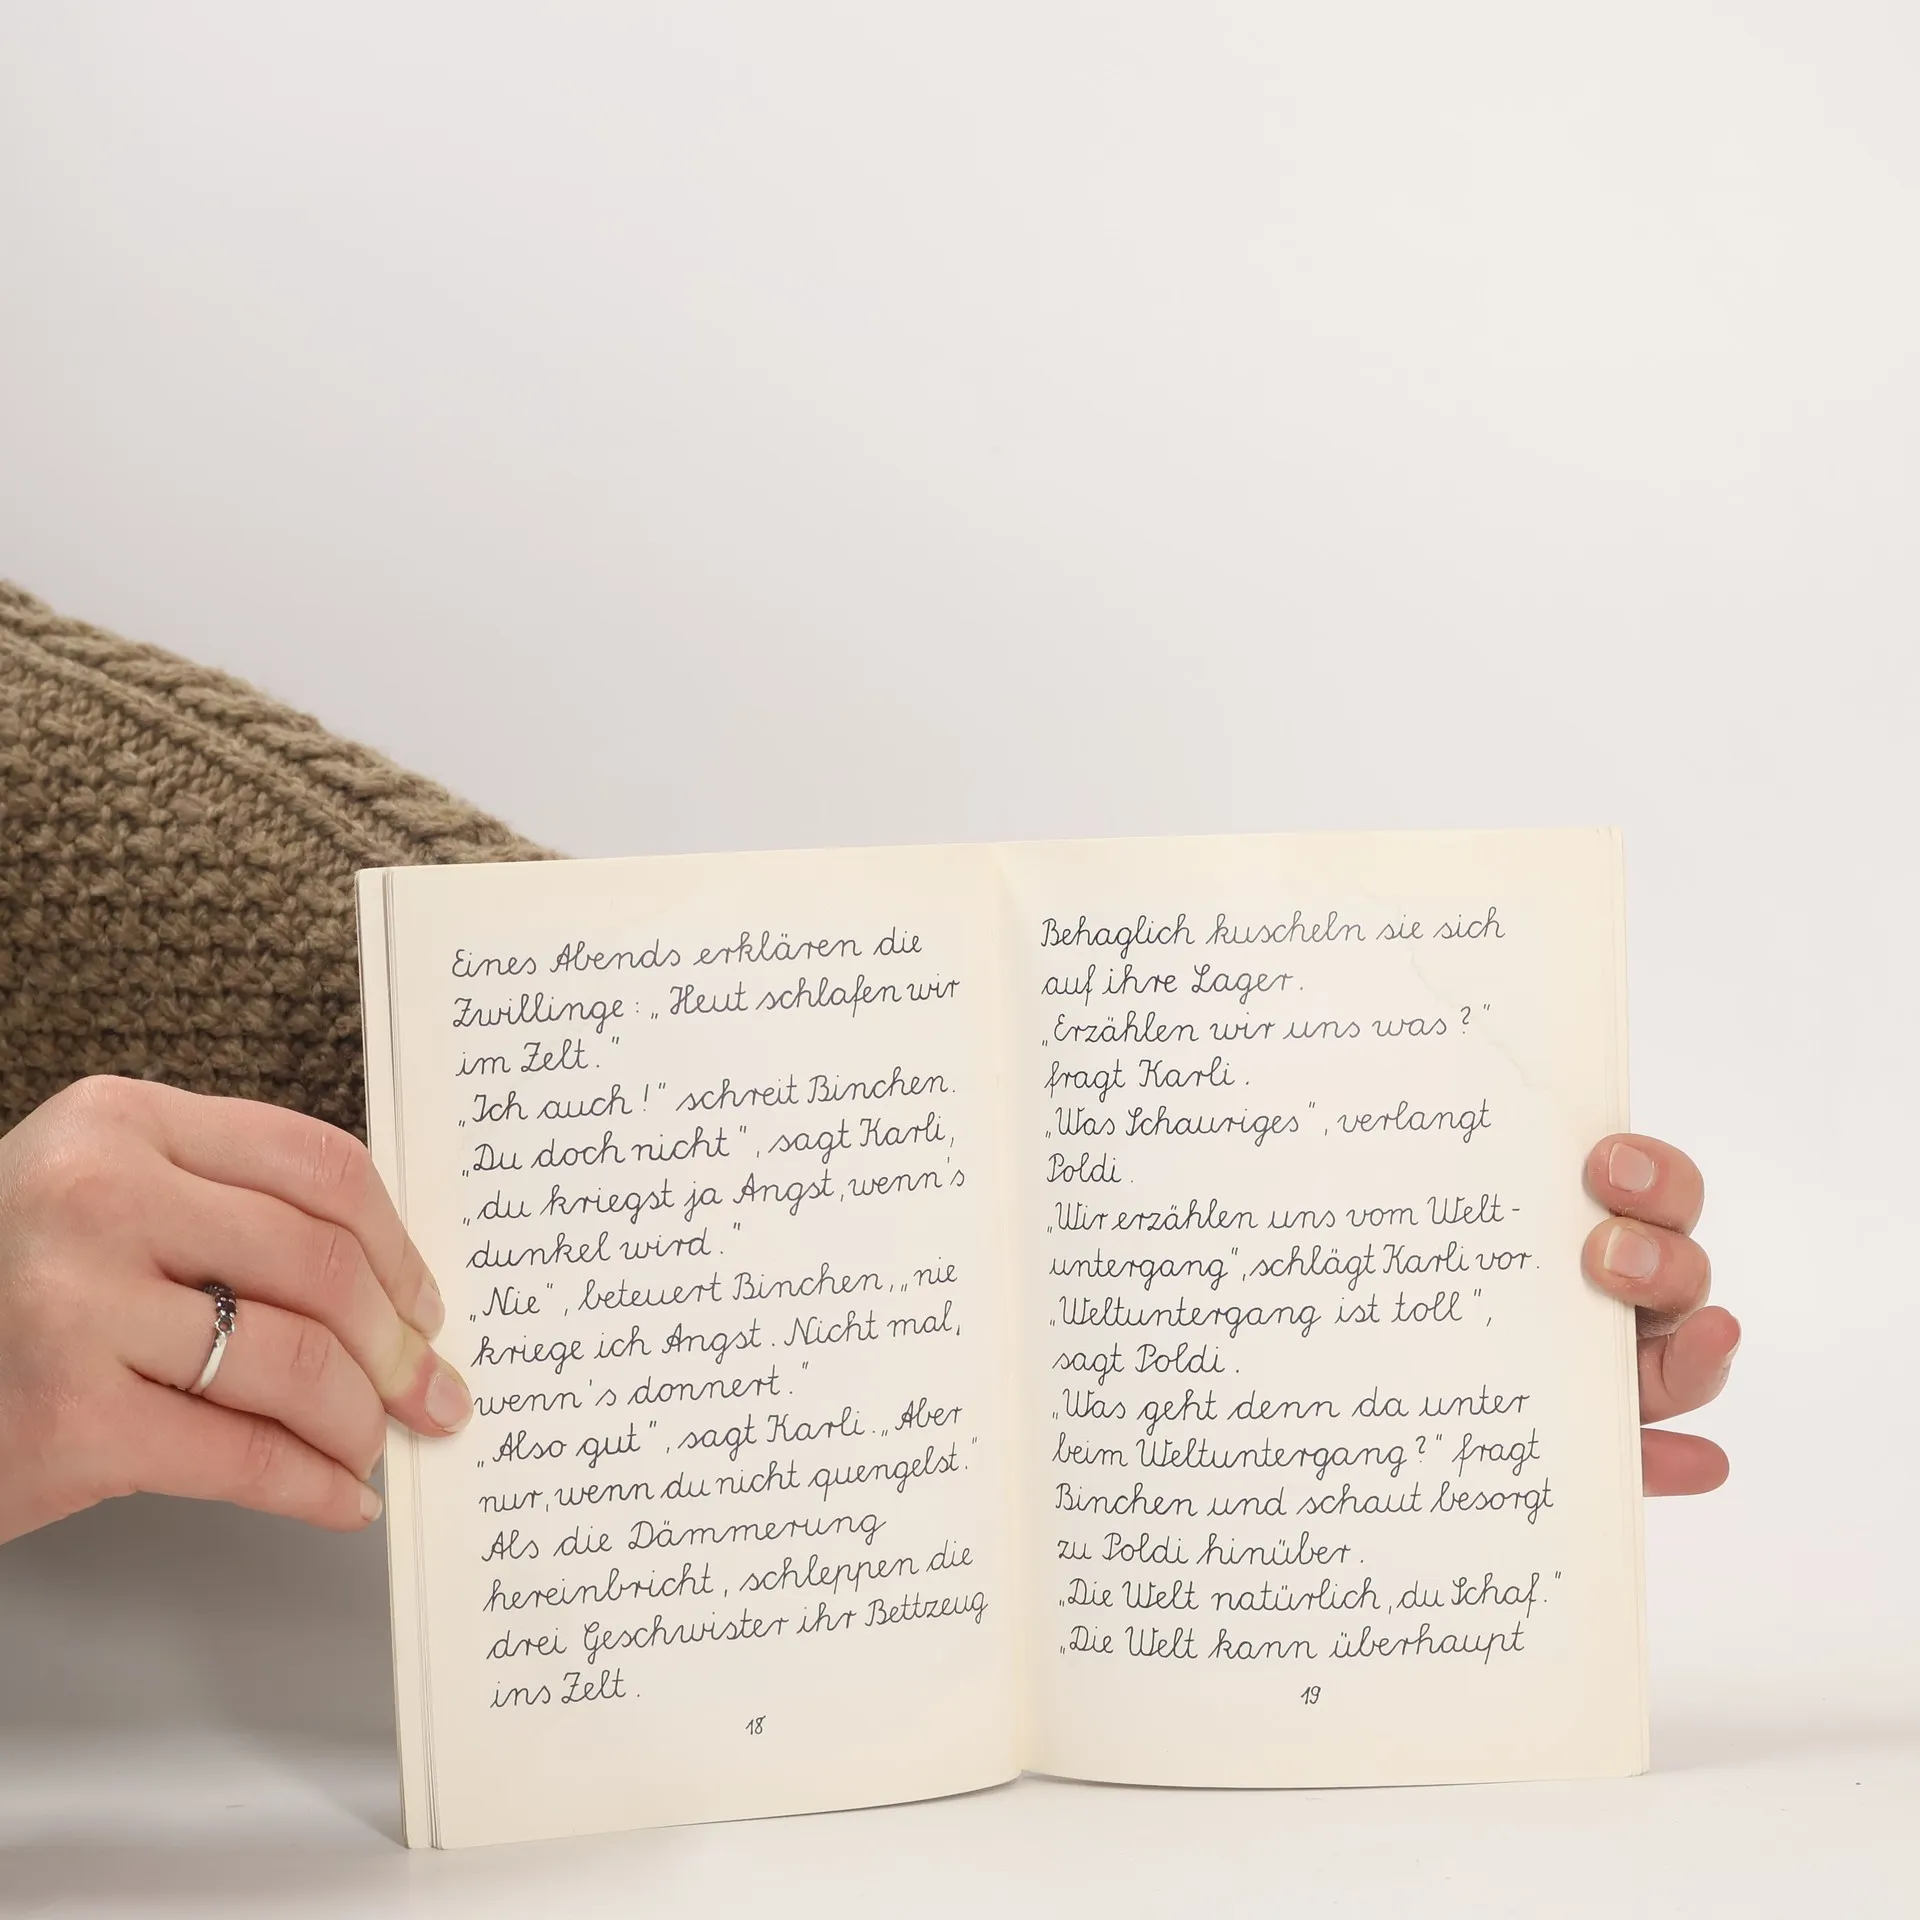 Eines Abends erklären die
Zwillinge: „Heut schlafen wir
im Zelt."
„Ich auch!" schreit Binchen.
„Du doch nicht", sagt Karli,
„du kriegst ja Angst, wenn's
dunkel wird."
„Nie", beteuert Binchen, „nie
kriege ich Angst. Nicht mal,
wenn's donnert."
„Also gut", sagt Karli. „Aber
nur, wenn du nicht quengelst."
Als die Dämmerung
hereinbricht, schleppen die
drei Geschwister ihr Bettzeug
ins Zelt.
18
Behaglich kuscheln sie sich
auf ihre Lager.
„Erzählen wir uns was?"
fragt Karli.
„Was Schauriges", verlangt
Poldi.
„Wir erzählen uns vom Welt-
untergang", schlägt Karli vor.
„Weltuntergang ist toll",
sagt Poldi.
„Was geht denn da unter
beim Weltuntergang?" fragt
Binchen und schaut besorgt
zu Poldi hinüber.
„Die Welt natürlich, du Schaf."
„Die Welt kann überhaupt
19